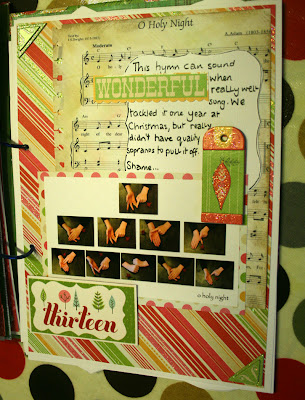 O Holy Night
A. Adam
Moderato
This hymn can sound
WONDERFUL when
really well
sung. We
tackled it one year at
Christmas, but really
didn't have quality
sopranos to pull it off.
Shame...
o holy night
thirteen